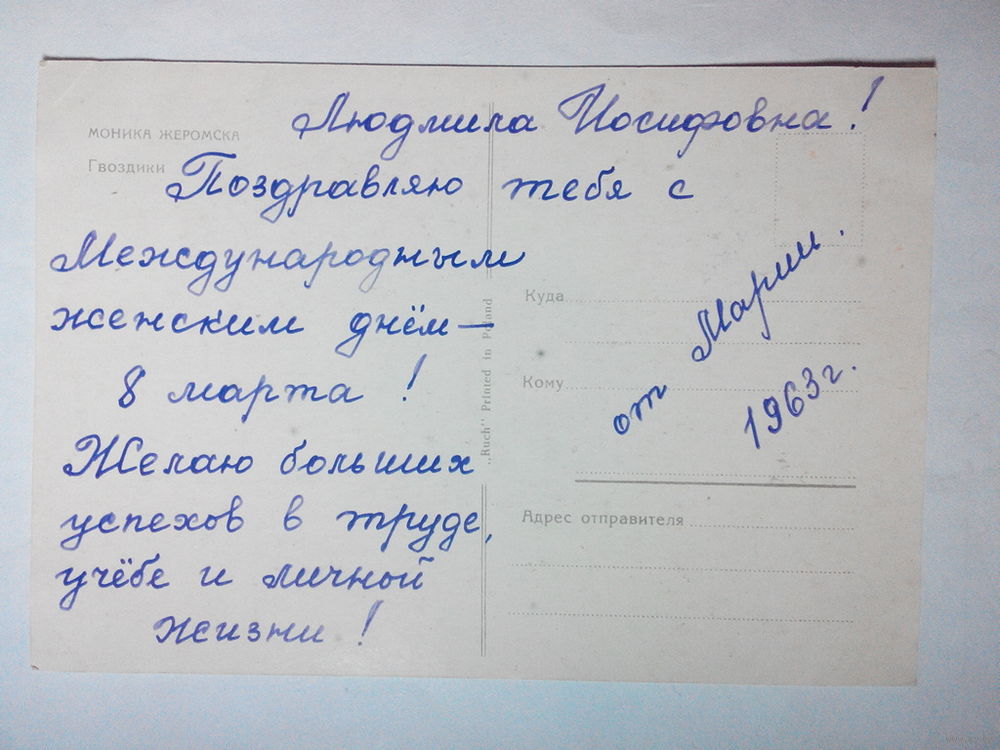 Людмила Иосифовна!
МОНИКА ЖЕРОМСКА
Гвоздики
Поздравляю тебя с
Международным
женским днём —
8 марта!
Желаю больших
успехов в труде,
учёбе и личной
жизни!
от Марии.
1963г.
"Ruch" Printed in Poland
Куда
Кому
Адрес отправителя